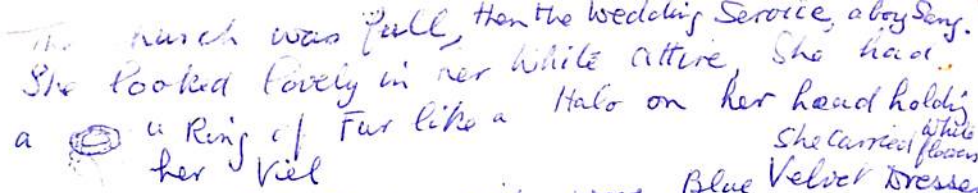 The church was full, then the Wedding Service, a boy Sang.
She looked lovely in her White attire, She had
a " Ring of Fur like a Halo on her head holding
her Viel She Carried White flowers
Blue Velvet Dresses